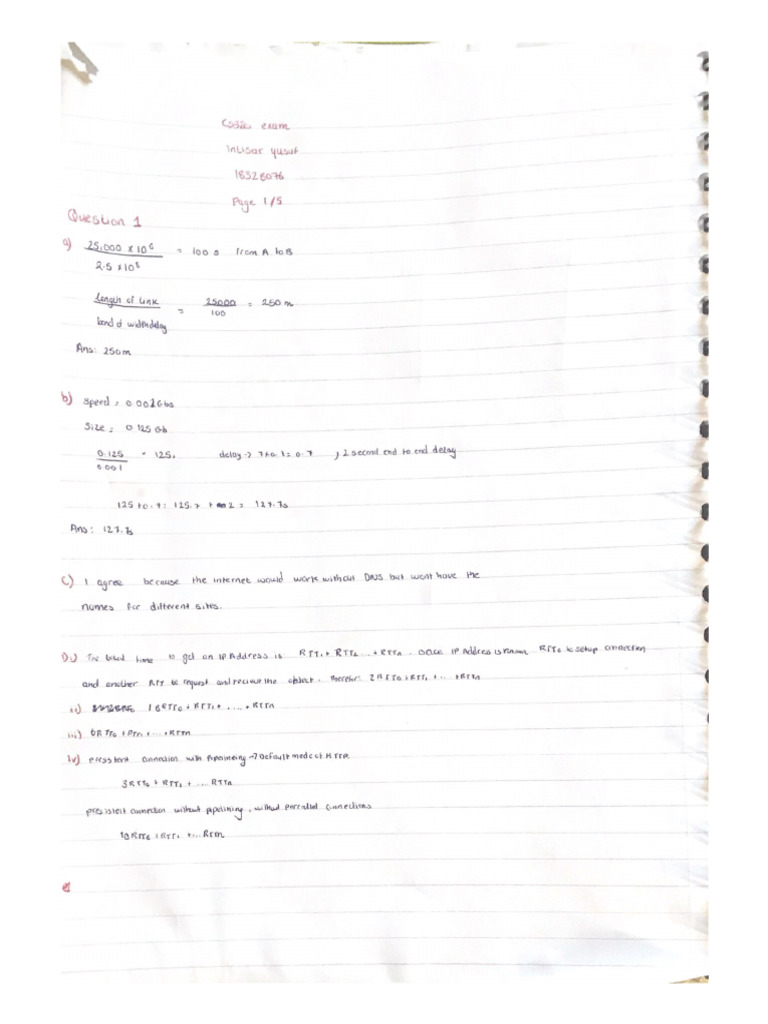 exam
Intisar Yusuf
18328076
Page 1/5
Question 1
a) 25,000 x 10⁶ = 100 from A to B
2.5 x 10⁸
length of link = 25000 = 250 m
100
Ans: 250m
b) speed = 0.001Gbs
Size = 0.125 Gb
0.125 = 125s
0.001
delay → 7 x 0.1 = 0.7 , 2 second end to end delay
125 + 0.7 = 125.7 + 2 = 127.7s
Ans: 127.7s
c) I agree because the internet would work without DNS but wont have the
names for different sites.
Di) The total time to get an IP Address is RTT₁ + RTT₂ ... + RTTn . once IP Address is known, RTT₀ to setup connection
and another RTT to request and recieve the object. Therefor: 2RTT₀ + RTT₁ + ... + RTTn
ii) 18RTT₀ + RTT₁ + .... + RTTn
iii) 6RTT₀ + + ... + RTTn
iv) connection with → Default mode of HTTP
3RTT₀ + RTT₁ + ... RTTn
connection without pipelining, without connections
10RTT₀ + RTT₁ + ... RTTn
e)